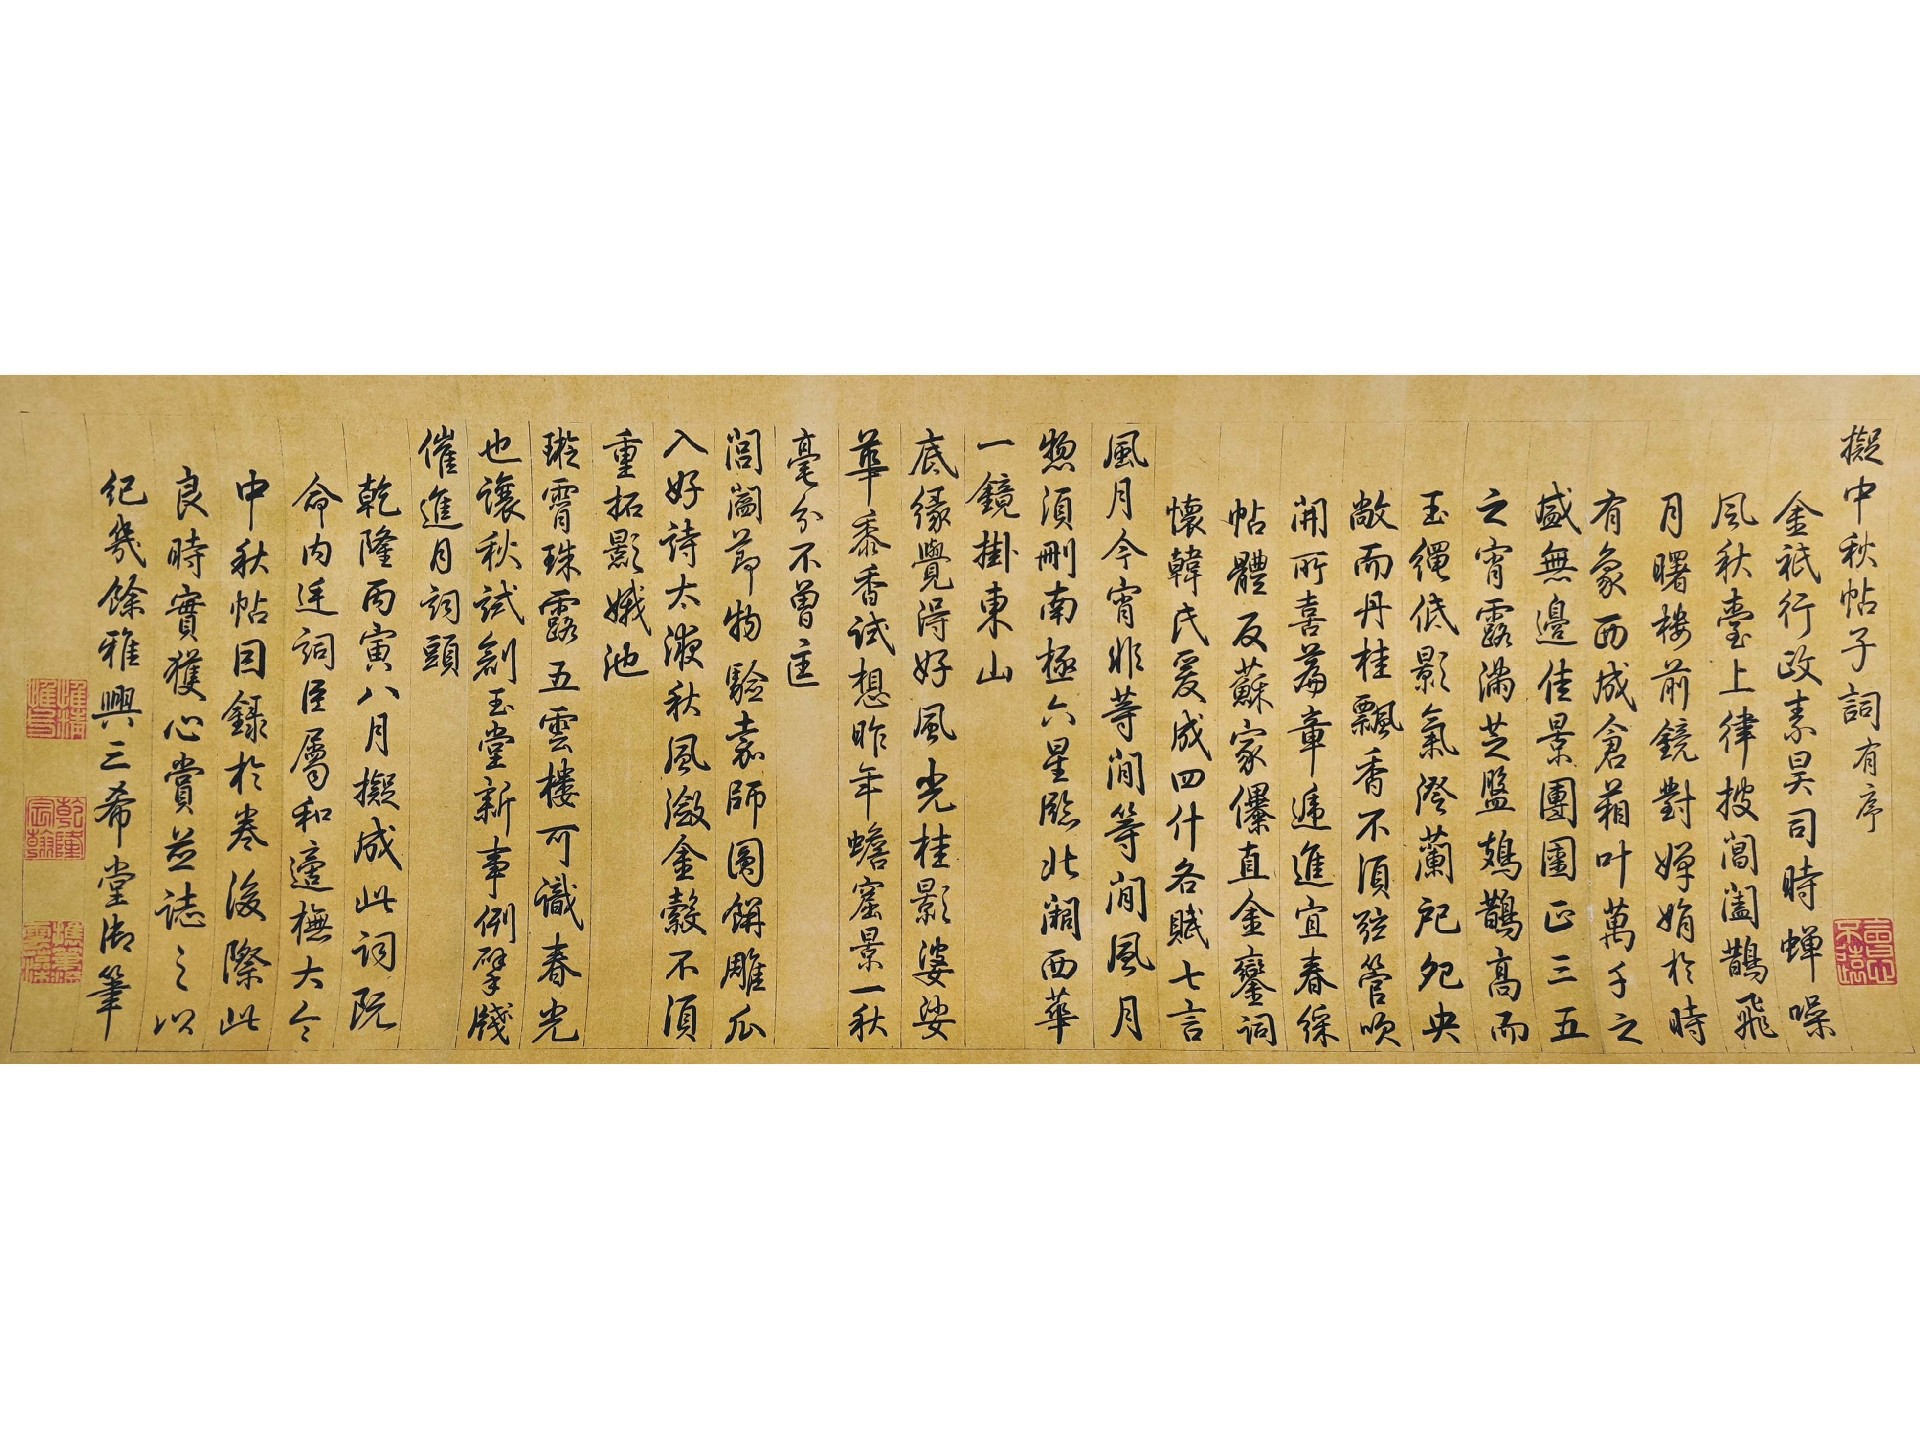 擬中秋帖子詞有序
金祇行政素昊司時蟬噪
風秋臺上律披閶闔鵲飛
月曙樓前鏡對嬋娟於時
有象西成倉箱叶萬千之
盛無邊佳景團圞正三五
之宵露滿芝盤鳷鵲高而
玉繩低影氣澄蘭戺兜央
敞而丹桂飄香不須弦管吹
開所喜篇章遞進宜春綵
帖體反蘇家儤直金鑾詞
懷韓氏爰成四什各賦七言
風月今宵非等閒等閒風月
惣須刪南極六星臨北闕西華
一鏡掛東山
底緣覺得好風光桂影婆娑
華黍香試想昨年蟾窟景一秋
毫分不曾差
閭閻節物驗袁師圓餅雕瓜
入好詩太液秋風瀲金縠不須
重拓影娥池
璇霄珠露五雲樓可識春光
也讓秋試創玉堂新事例擘牋
催進月詞頭
乾隆丙寅八月擬成此詞既
命內廷詞臣屬和適橅大令
中秋帖因錄於卷後際此
良時實獲心賞並誌之以
紀幾餘雅興三希堂御筆
乾隆宸翰